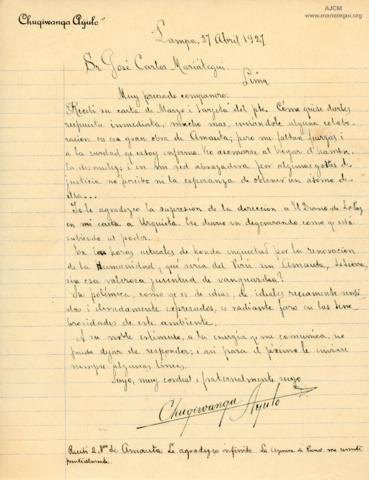 AJCM
www.mariategui.org
Chuqiwanqa Ayulo
Lampa, 27 Abril 1927
Sr José Carlos Mariátegui
Lima
Muy preciado compañero:
Recibí su carta de Marzo i tarjeta del pte. Cómo quise darles
respuesta inmediata, mucho mas, enviándole alguna colabo-
ración en esa gran obra de Amauta; pero me faltan fuerzas i
a la verdad qe estoy enfermo. Veo asomarse al hogar el hambre
la desnudez; i en mi sed abrazadora por algunas gotas de
justicia no percibo ni la esperanza de obtener un átomo de
ella...
Yo le agradezco la supresion de la direccion a El Diario de
en mi carta a Urquieta. Ese diario va degenerando como qe está
subiendo al poder.
En las horas actuales de honda inquietud por la renovación
de la Humanidad, qué sería del Perú sin Amauta,
sin esa valerosa juventud de vanguardia?
La polémica, como qe es de ideas, de ideales reciamente senti-
dos i elevadamente expresados, es radiante faro en las tene-
brosidades de este ambiente.
A su noble estímulo, a la energía qe me comunica, no
puedo dejar de responder; i así para el próximo le enviaré
siempre algunas líneas.
Suyo, muy cordial i fraternalmente suyo
Chuqiwanqa Ayulo
Recibí 2 Nos de Amauta. Le agradezco infinito. La de Puno me remite
puntualmente.